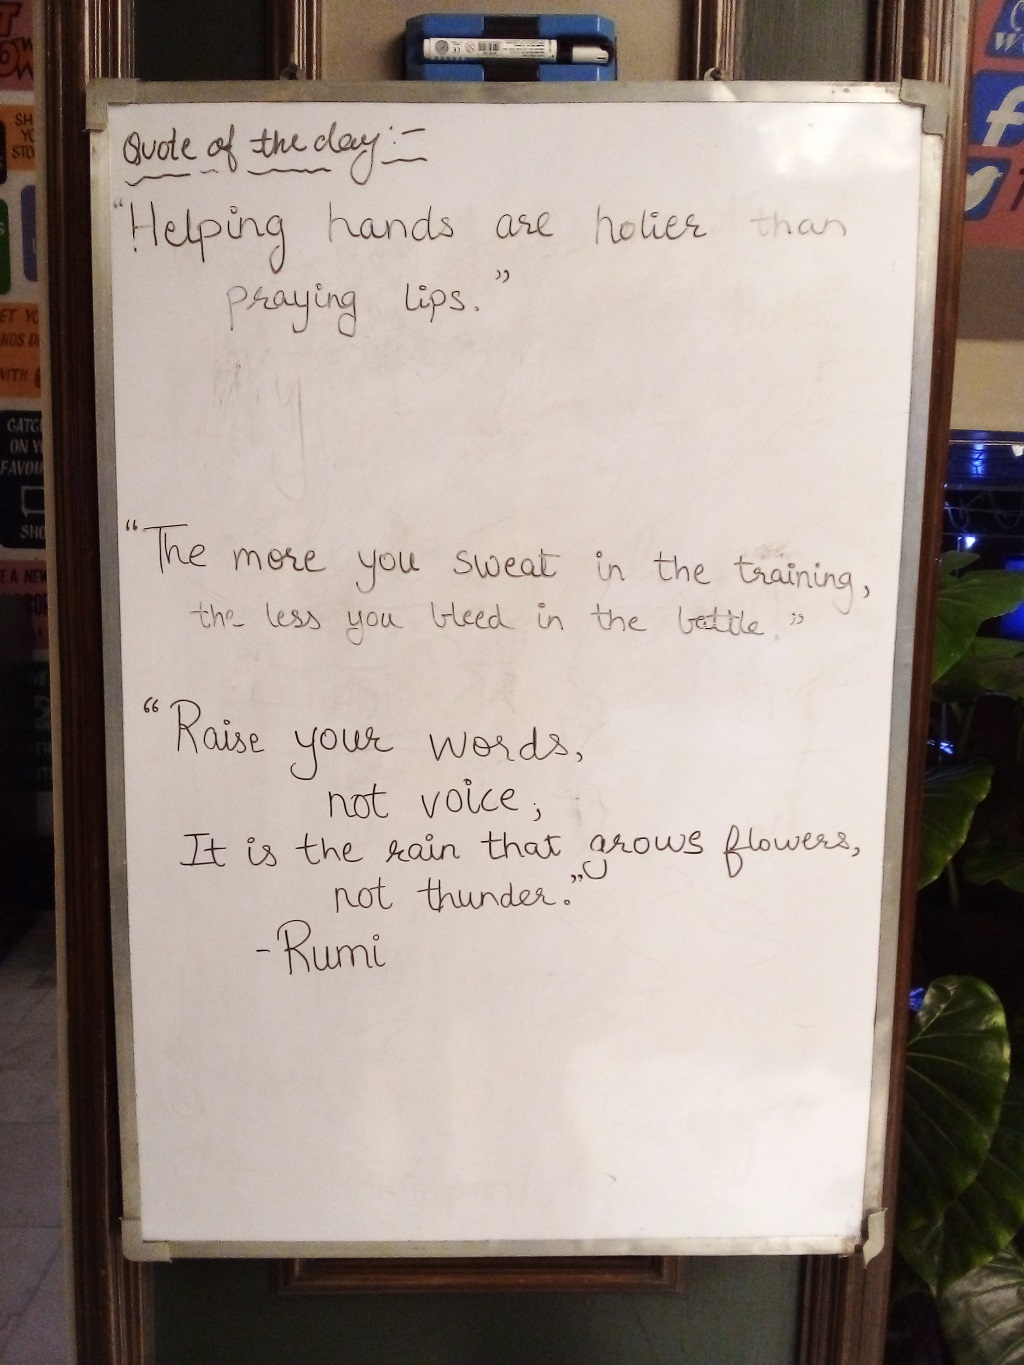 Quote of the day:-
"Helping hands are holier than
praying lips."
"The more you sweat in the training,
the less you bleed in the battle."
"Raise your words,
not voice,
It is the rain that grows flowers,
not thunder."
-Rumi
SH
YO
STO
ET YO
WITH
CATC
ON Y
FAVOU
SHO
E A NEW
f